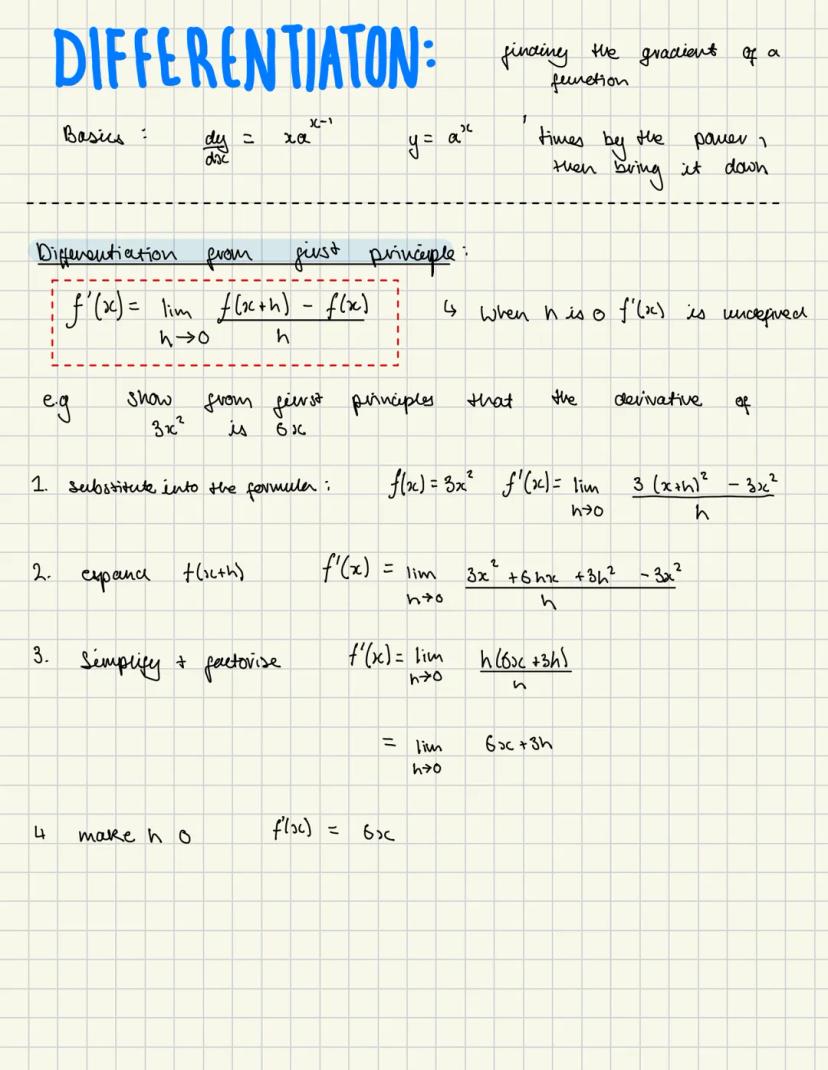 DIFFERENTIATON:
finding the gradient of a
function
Basics : dy/dx = xa^(x-1) y = a^x 'times by the power,
then bring it down
Differentiation from first principle:
f'(x) = lim h→0 (f(x+h) - f(x))/h ↳ when h is 0 f'(x) is undefined
e.g show from first principles that the derivative of
3x² is 6x
1. substitute into the formula: f(x) = 3x² f'(x) = lim h→0 (3(x+h)² - 3x²)/h
2. expand f(x+h) f'(x) = lim h→0 (3x² + 6hx + 3h² - 3x²)/h
3. simplify + factorise f'(x) = lim h→0 h(6x + 3h)/h
= lim h→0 6x + 3h
4 make h 0 f'(x) = 6x